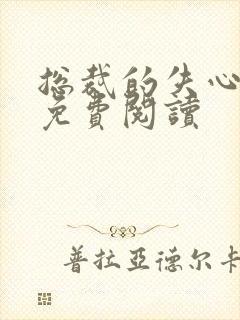 总裁的失心
免費閱讀
普拉亞德尔卡